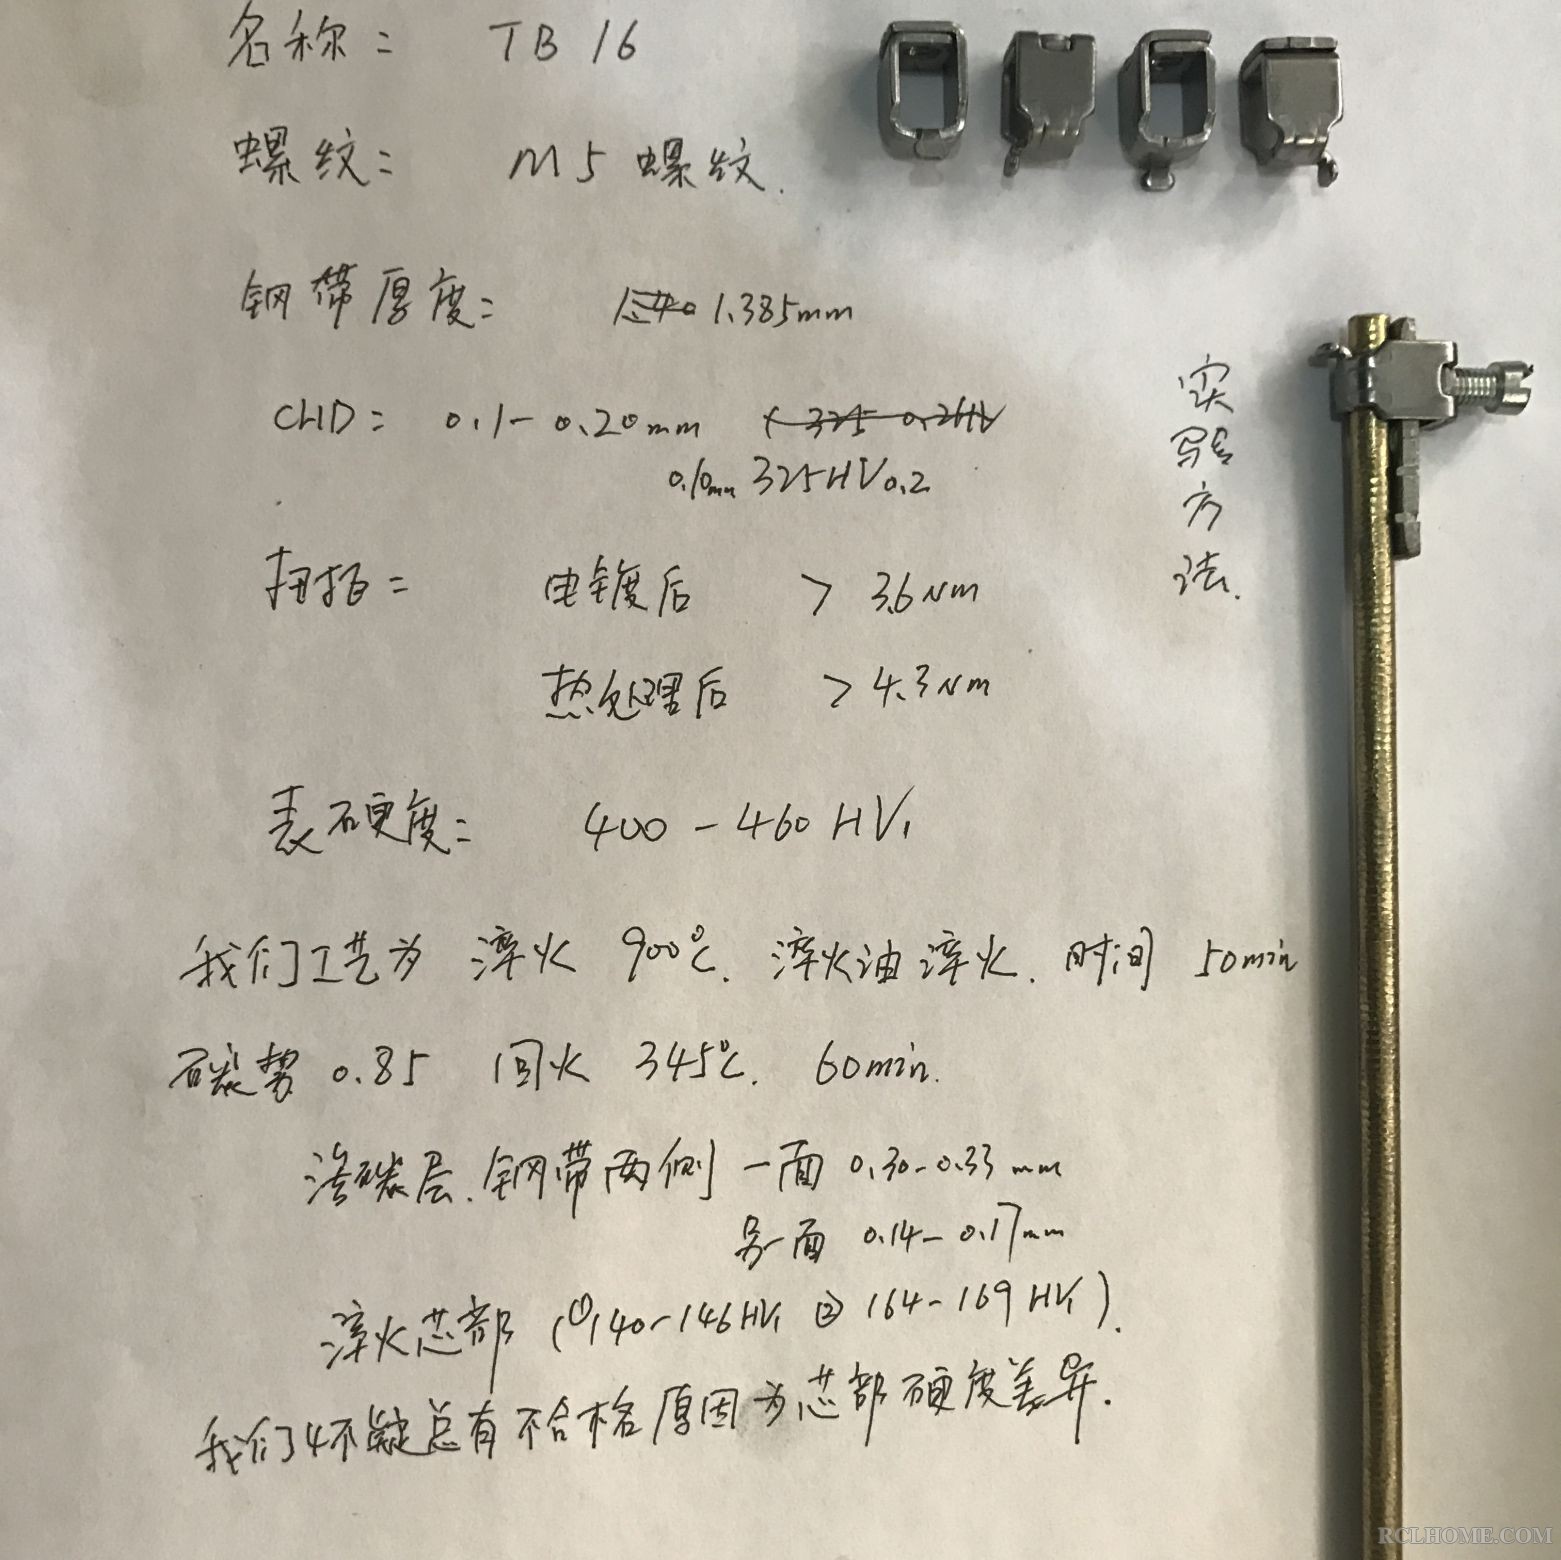 名称： TB 16
螺纹： M5 螺纹.
钢带厚度： 1.385mm
CHD： 0.1-0.20mm ( 325 0.2HV
0.10mm 325HV0.2
实验方法.
扭拒： 电镀后 > 3.6Nm
热处理后 > 4.3Nm
表硬度： 400-460HV1
我们工艺为 淬火 900℃. 淬火油淬火. 时间 50min
碳势 0.85 回火 345℃. 60min.
渗碳层. 钢带两侧 一面 0.30-0.33mm
另一面 0.14-0.17mm
淬火芯部 (①140-146HV1 ② 164-169HV1).
我们怀疑总有不合格原因为芯部硬度差异.
RCLHOME.COM